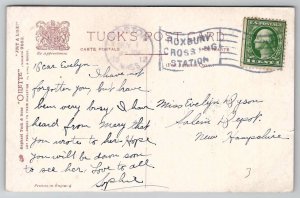 TUCK'S POST CARD
CARTE POSTALE
ROXBURY
CROSSING
STATION
Dear Evelyn. I have not
forgotten you, but have
been very busy. I have
heard from Mary that
you wrote to her. Hope
you will be down soon
to see her. Love to all
Sophie
Miss Evelyn Dyson
Salem Depot.
New Hampshire.
3
"OILETTE"